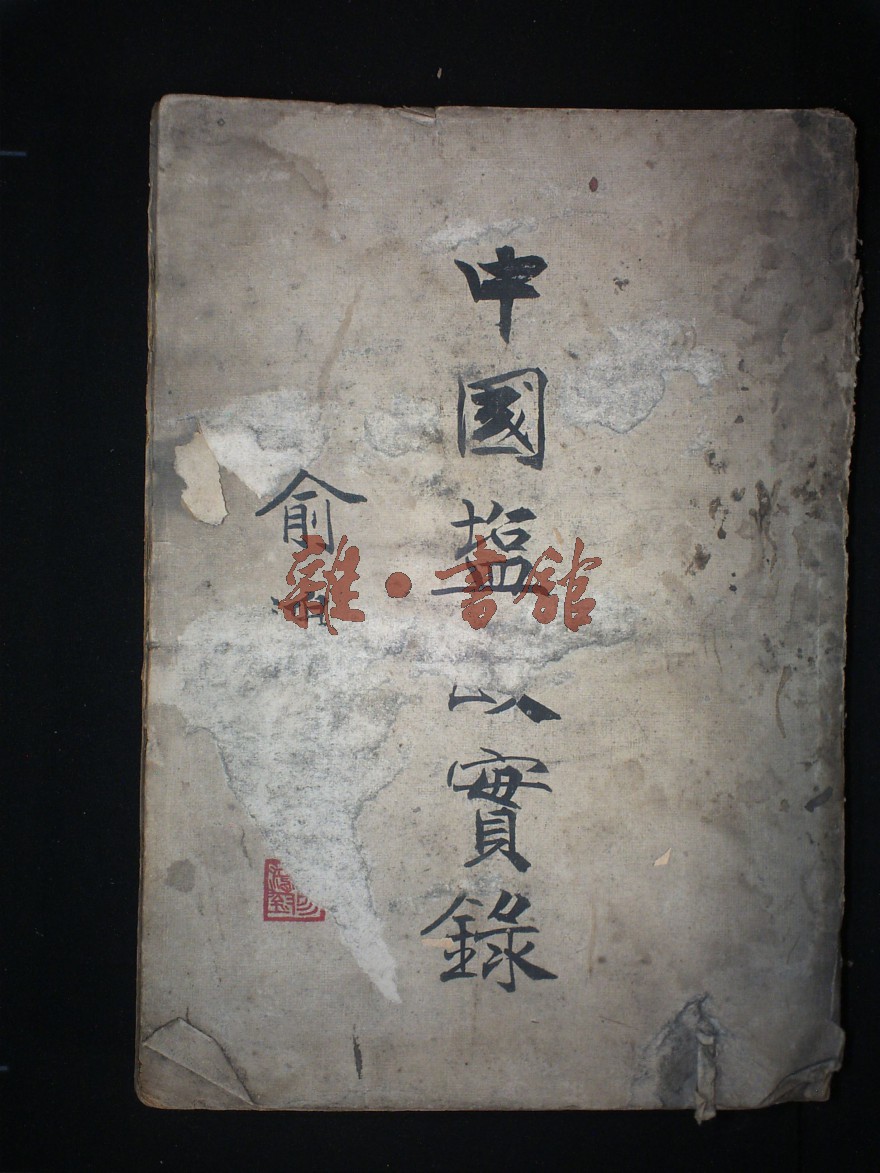 中國塩實錄
俞
雜·書館